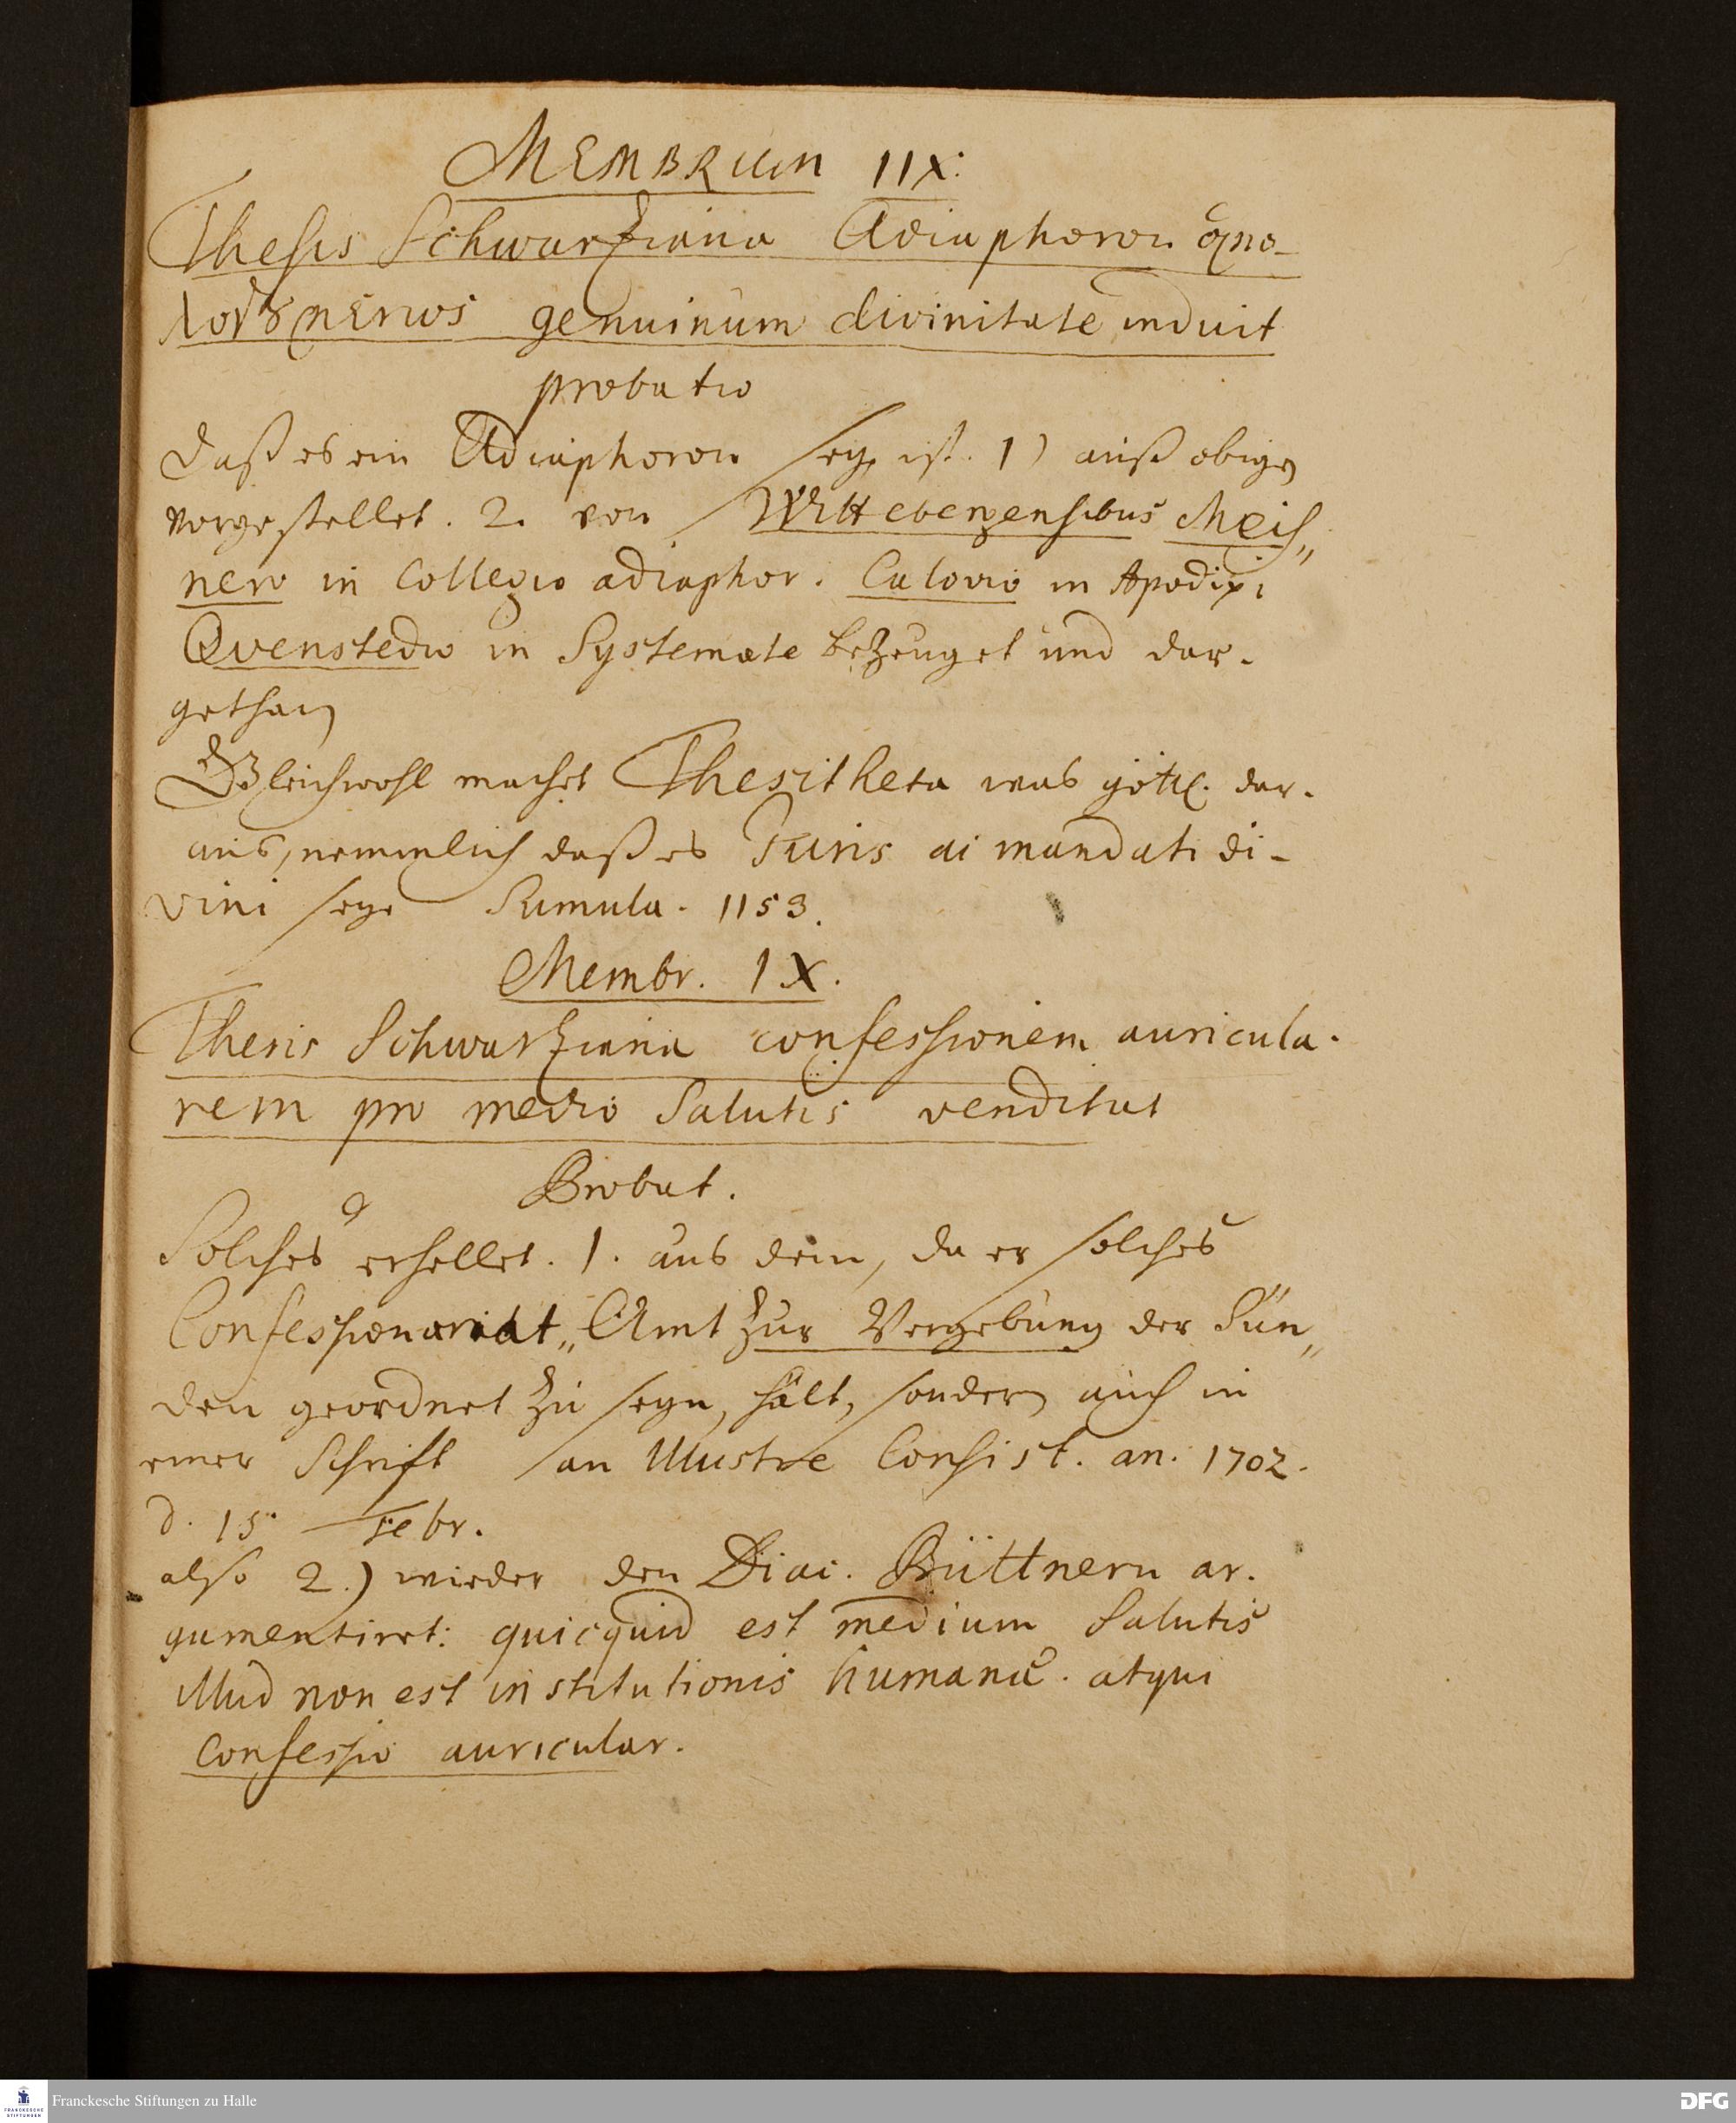 MEMBRUM IIX.
Thesis Schwartziana Adiaphoron ὁμο-
λογουμένως genuinum divinitate induit
probatio
Daß es ein Adiaphoron sey, ist. 1) auß obigen
vorgestellet. 2. von Wittebergensibus Meis„
nero in Collegio adiaphor. Calovio in Apodixi
Qvenstedio in Systemate bezeuget und dar-
gethan
Gleichwohl machet Thesitheta was göttl. dar-
aus, nemmlich daß es Juris ac mandati di-
vini seye Sumula. 1153.
Membr. IX.
Thesis Schwartziana confessionem auricula-
rem pro medio Salutis venditat
Probat.
Solches erhellet. 1. aus dem, da er solches
Confessionariat„ Amt zur Vergebung der Sün„
den geordnet zu seyn, hält, sondern auch in
einer Schrifft an Illustre Consist. an. 1702.
d. 15. Febr.
also 2.) wieder den Diac. Büttnern ar-
gumentiret: quicquid est medium Salutis
illud non est institutionis humanæ. atqui
Confessio auricular.
Franckesche Stiftungen zu Halle
FRANCKESCHE
STIFTUNGEN
DFG